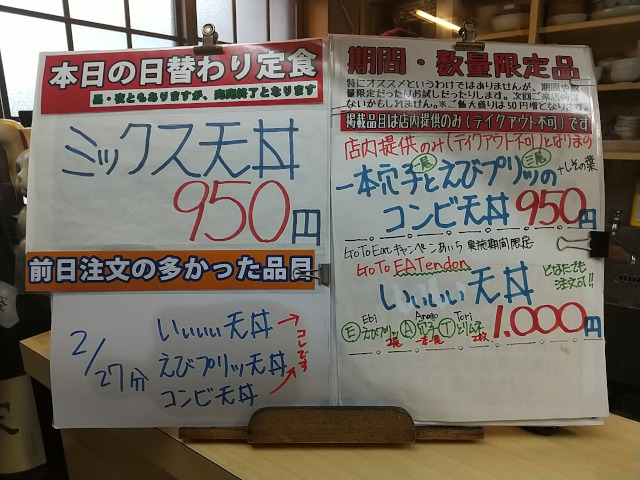 本日の日替わり定食
昼・夜ともありますが、売切終了となります
ミックス天丼
950円
前日注文の多かった品目
2/27分
いいいい天丼
えびプリッ天丼
コンビ天丼
コレです
期間・数量限定品
特にオススメというわけではありませんが、期間や数
量限定だったりお試しだったりします。次回ご来店時は
ないかもしれません。※ご飯大盛りは50円増となります。
掲載品目は店内提供のみ(テイクアウト不可)です
店内提供のみ(テイクアウト不可)となります
一本穴子と
一尾
えびプリッの
三尾
+しその葉
コンビ天丼 950円
GoToEatキャンペーンあいち 実施期間限定
GoTo EATendon
いいいい天丼
ことばでも
注文は!!
Ebi Anago Tori
Ⓔえびプリッ Ⓐ穴子 Ⓣとりムネ
2尾 一本 2枚
1,000円